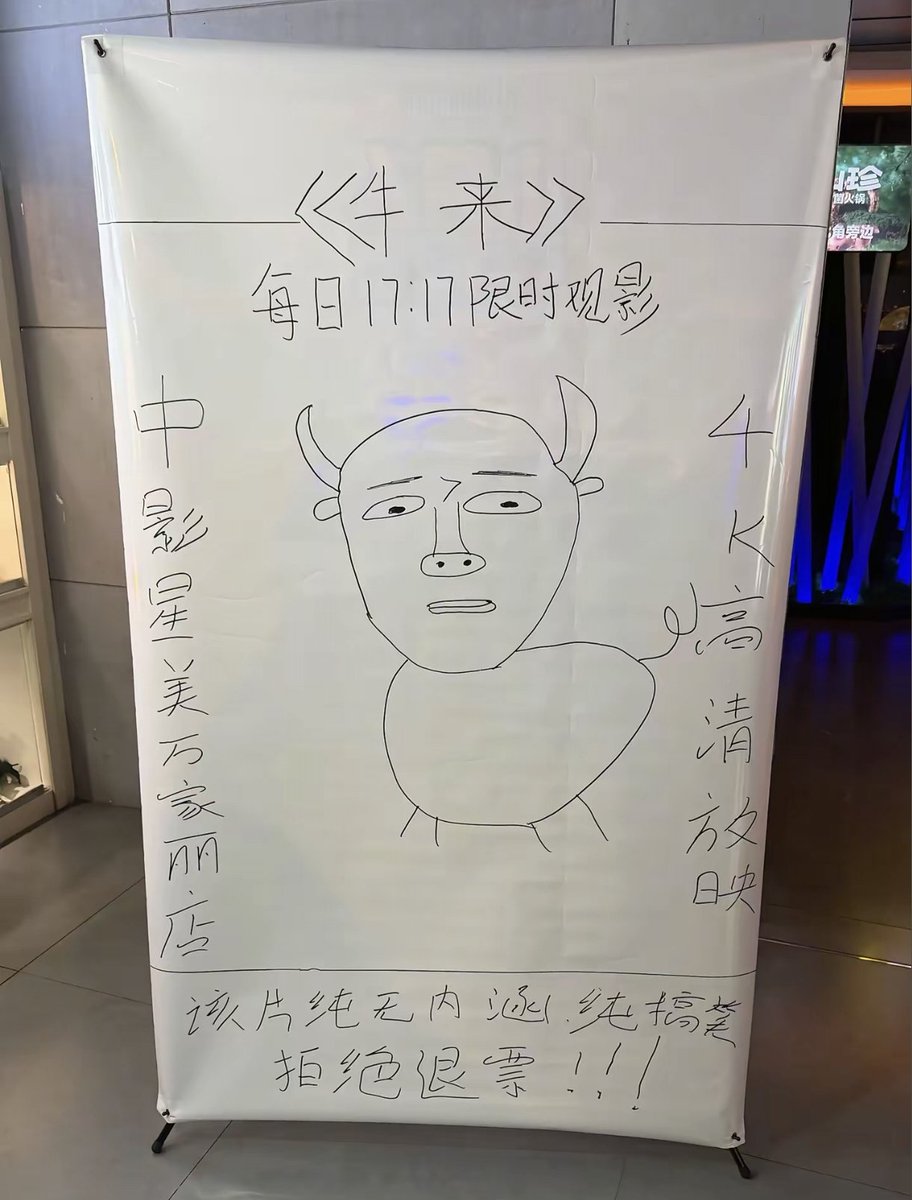 《牛来》
每日17:17限时观影
中影星美万家丽店
4K高清放映
该片纯无内涵.纯搞笑
拒绝退票!!!
珍
火锅
角旁边